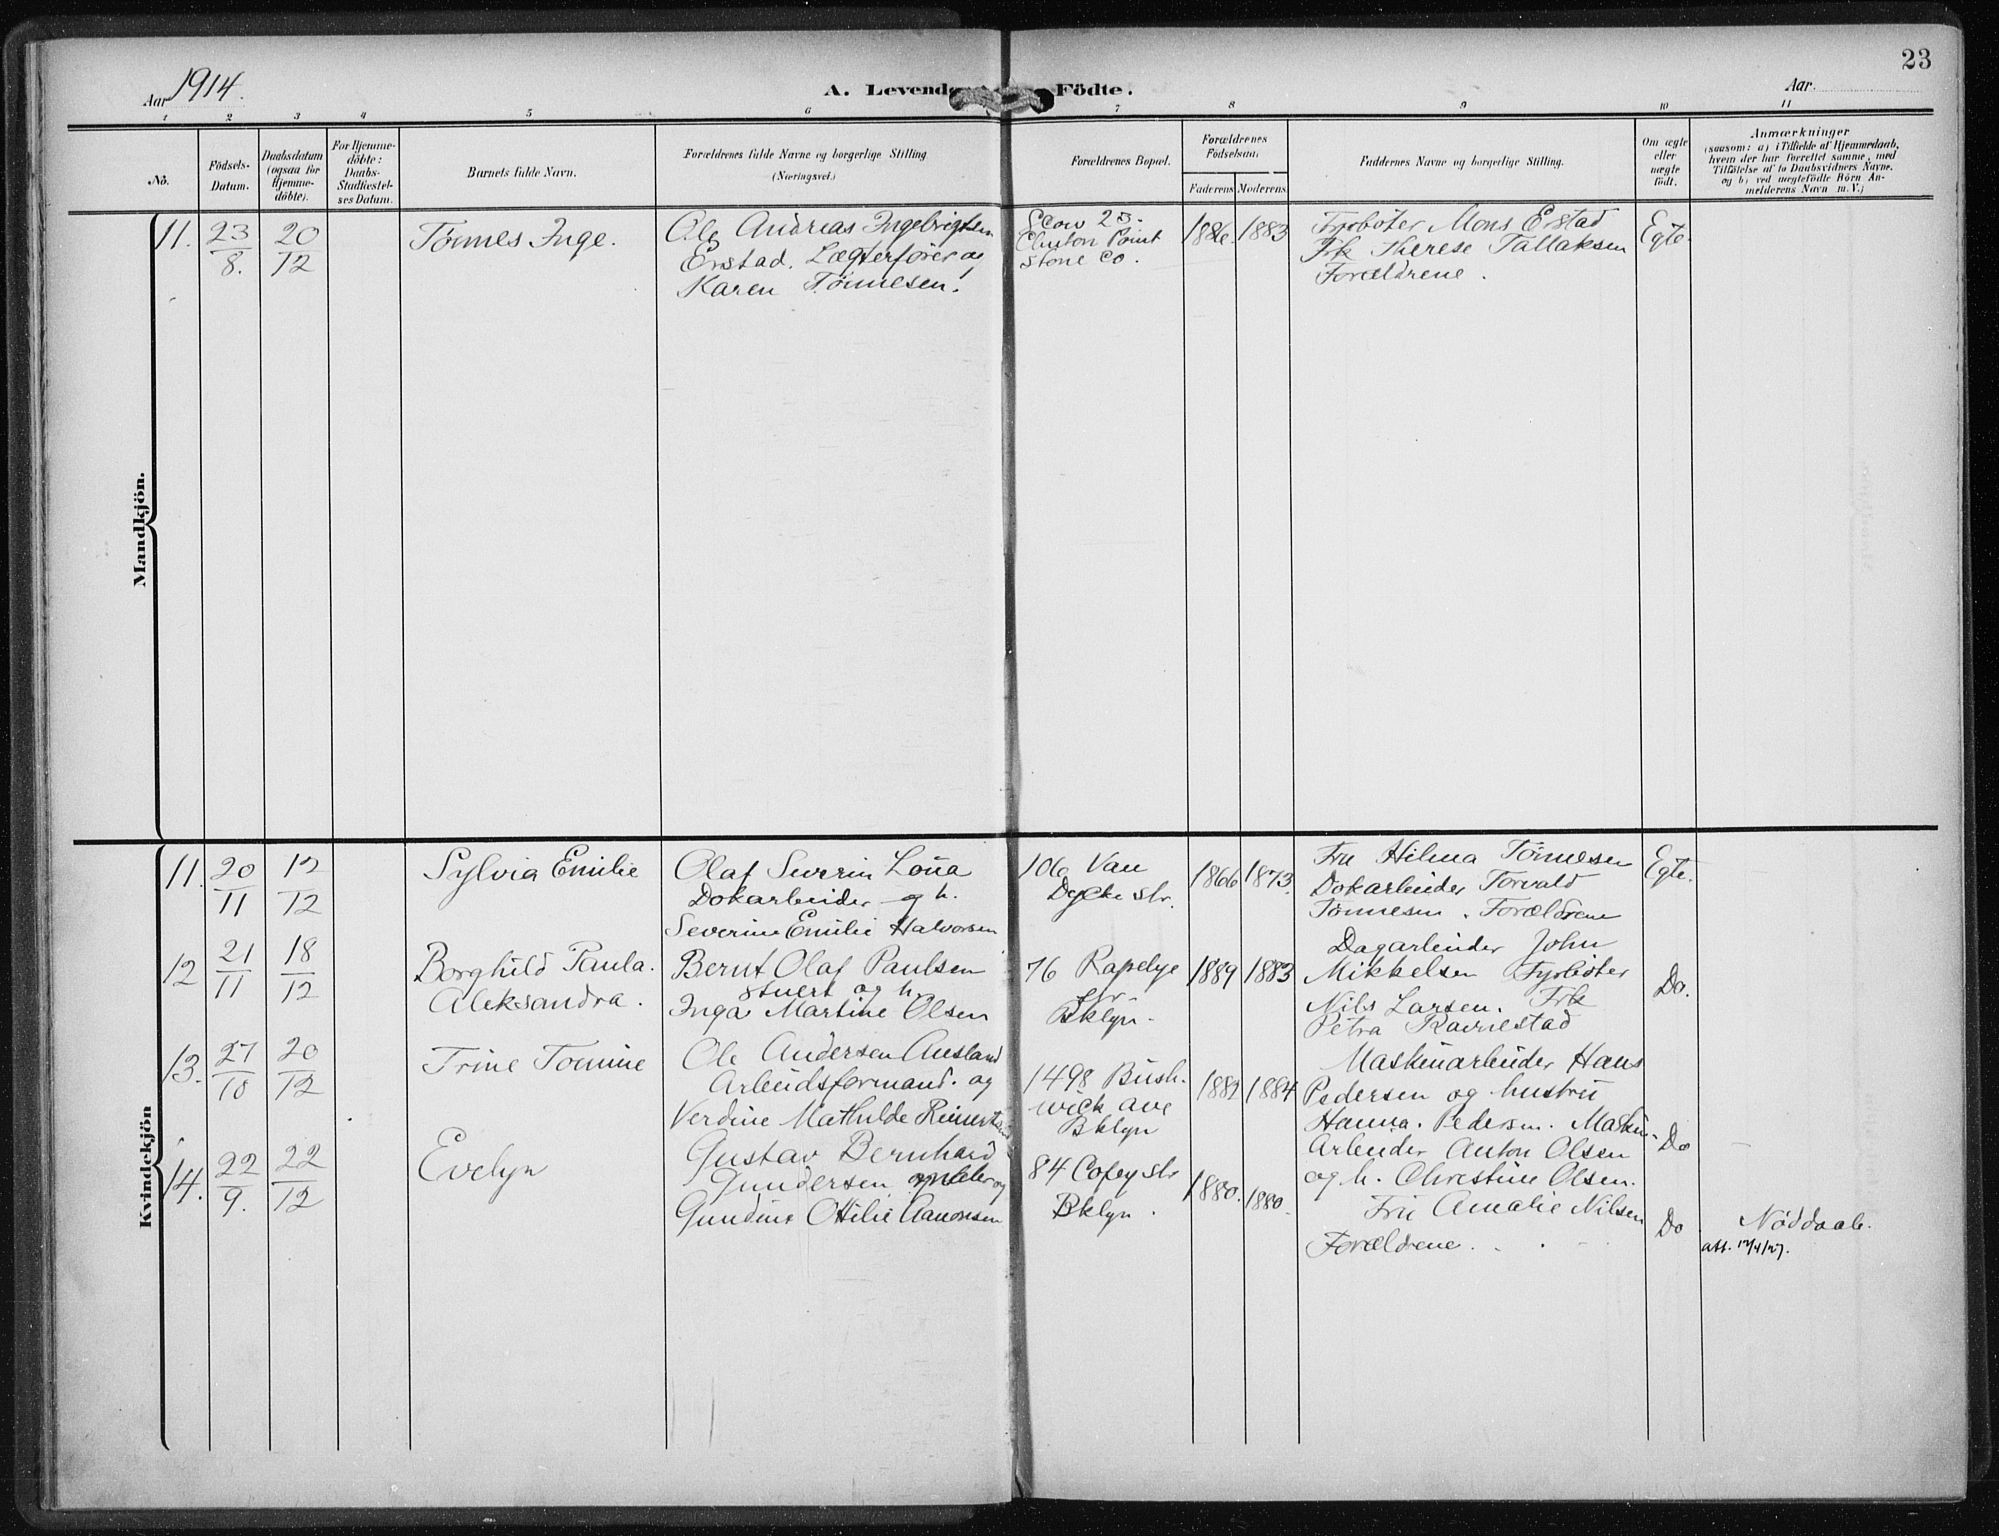 23
Aar 1914.
A. Levende Födte.
Aar.
1 2 3 4 5 6 7 8 9 10 11
No.
Födsels-Datum.
Daabsdatum (ogsaa for Hjemme-döbte).
For Hjemme-döbte: Daabs-Stadfæstel-ses Datum.
Barnets fulde Navn.
Forældrenes fulde Navne og borgerlige Stilling
(Næringsvei.)
Forældrenes Bopæl.
Forældrenes Födselsaar.
Faderens Moderens
Faddernes Navne og borgerlige Stilling.
Om ægte eller uægte födt.
Anmærkninger
(saasom: a) i Tilfælde af Hjemmedaab, hvem der har forrettet samme, med Tilföielse af to Daabsvidners Navne, og b) ved uægtefödte Börn An-melderens Navn m. V.)
Mandkjön.
11. 23/8. 20/12
Tønnes Inge.
Ole Andreas Ingebrigtsen
Erstad. Lægterfører og
Karen Tønnesen.
Scow 23.
Clinton Point
Stone Co.
1886. 1883
Fyrbøter Mons Erstad
Frk Therese Tallaksen
Forældrene.
Egte.
Kvindekjön
11. 20/11 12/12
Sylvia Emilie
Olaf Severin
Dokarbeider og h.
Severine Emilie Halvorsen
106 Van
Dycke str.
1866 1873.
Fru Hilma Tønnesen
Dokarbeider Torvald
Tønnesen. Forældrene
Egte.
12 21/11 18/12
Borghild Paula.
Aleksandra.
Bernt Olaf Paulsen
stuert og h.
Inga Martine Olsen
76 Rapelye
str
Bklyn.
1889 1883
Dagarbeider John
Mikkelsen Fyrbøter
Nils Larsen. Frk
Petra Ravnestad
Do.
13. 27/10 20/12
Trine Tomine
Ole Andersen Ausland
Arbeidsformand. og
Verdine Mathilde
1498 Bush.
wick ave
Bklyn
1882 1884
Maskinarbeider Hans
Pedersen og hustru
Hanna. Pedersen. Maskin-
Arbeider Anton Olsen
og h. Christine Olsen.
Do
14. 22/9. 22/12
Evelyn
Gustav Bernhard
Gundersen, og
Gundine Ottilie Aanonsen
84 Coffey str
Bklyn.
1880. 1880.
Fru Amalie Nilsen
Forældrene.
Do
Nøddaab.
att. 12/4/27.